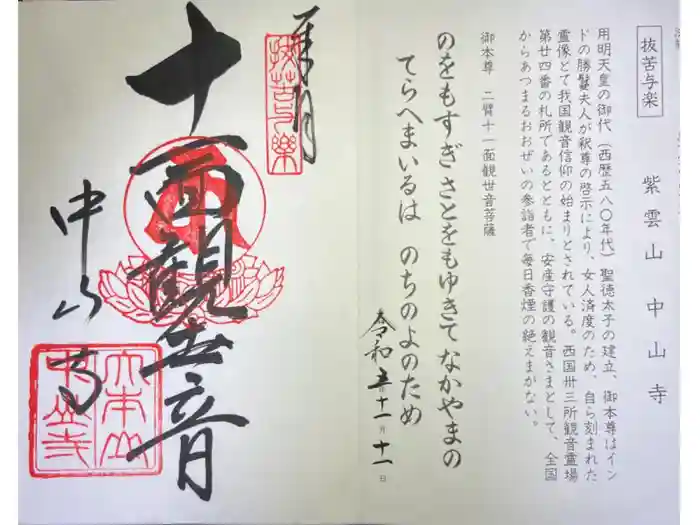 抜苦与楽
紫雲山中山寺
用明天皇の御代（西歴五八〇年代）聖徳太子の建立、御本尊はイン
ドの勝鬘夫人が釈尊の啓示により、女人済度のため、自ら刻まれた
霊像とて我国観音信仰の始まりとされている。西国卅三所観音霊場
第廿四番の札所であるとともに、安産守護の観音さまとして、全国
からあつまるおおぜいの参詣者で毎日香煙の絶えまがない。
御本尊 二臂十一面観世音菩薩
のをもすぎさとをもゆきてなかやまの
てらへまいるは のちのよのため
令和五年十一月十一日
抜苦与樂
十一面観世音
中山寺